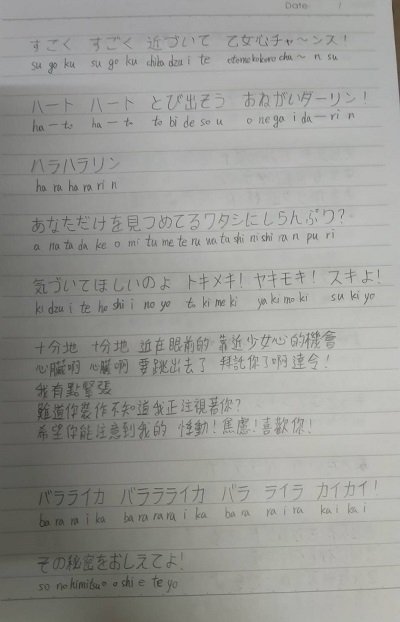 Date /
すごく すごく 近づいて 乙女心チャ〜ンス!
su go ku su go ku chika dzu i te otomekokoro cha〜 n su
ハート ハート とび出そう おねがいダーリン!
ha ー to ha ー to to bi de so u o ne ga i da ー ri n
ハラハラリン
ha ra ha ra ri n
あなただけを見つめてるワタシにしらんぷり?
a na ta da ke o mi tu me te ru wa ta shi ni shi ran pu ri
気づいてほしいのよ トキメキ! ヤキモキ! スキよ!
ki dzu i te ho shi i no yo to ki me ki ya ki mo ki su ki yo
十分地 十分地 近在眼前的 靠近少女心的機會
心臟啊 心臟啊 要跳出去了 拜託你了啊達令!
我有點緊張
難道你裝作不知道我正注視著你?
希望你能注意到我的 悸動!焦慮!喜歡你!
バラライカ バラララライカ バラ ライラ カイカイ!
ba ra ra i ka ba ra ra ra i ka ba ra ra i ra ka i ka i
その秘密をおしえてよ!
so no himitsu o o shi e te yo